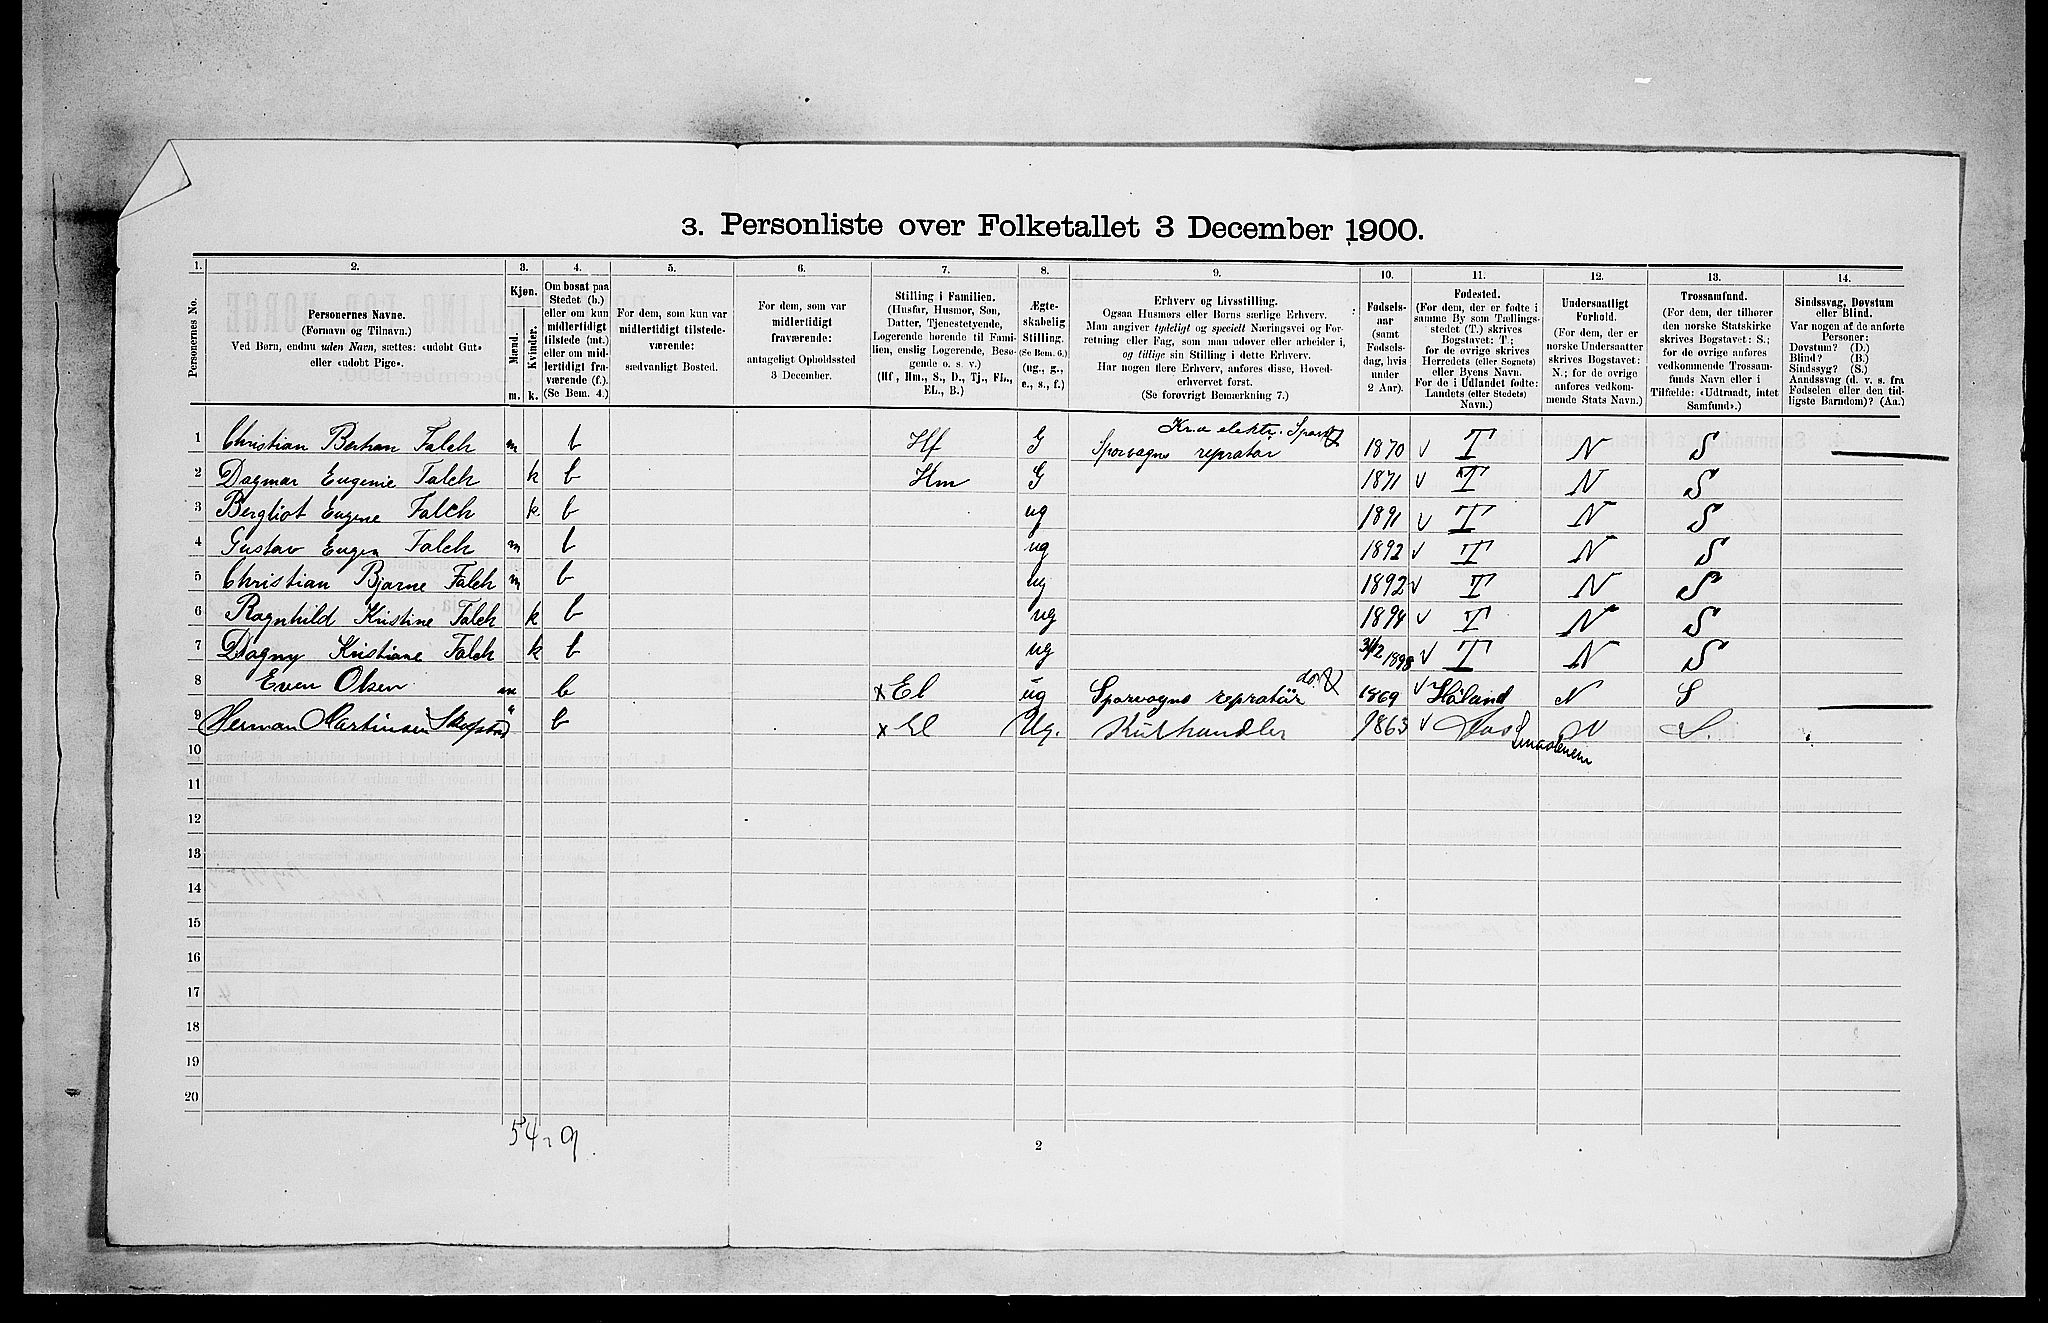 3. Personliste over Folketallet 3 December 1900.
1. 2. 3. 4. 5. 6. 7. 8. 9. 10. 11. 12. 13. 14.
Personernes No.
Personernes Navne.
(Fornavn og Tilnavn.)
Ved Børn, endnu uden Navn, sættes: «udøbt Gut»
eller «udøbt Pige».
Kjøn.
Mænd.
Kvinder.
m. k.
Om bosat paa
Stedet (b.)
eller om kun
midlertidigt
tilstede (mt.)
eller om mid-
lertidigt fra-
værende (f.).
(Se Bem. 4.)
For dem, som kun var
midlertidigt tilstede-
værende:
sædvanligt Bosted.
For dem, som var
midlertidigt
fraværende:
antageligt Opholdssted
3 December.
Stilling i Familien.
(Husfar, Husmor, Søn,
Datter, Tjenestetyende,
Logerende hørende til Fami-
lien, enslig Logerende, Besø-
gende o. s. v.)
(Hf, Hm., S., D., Tj., FL.,
EL., B.)
Ægte-
skabelig
Stilling.
(Se Bem. 6.)
(ug., g.,
e., s., f.)
Erhverv og Livsstilling.
Ogsaa Husmors eller Børns særlige Erhverv.
Man angiver tydeligt og specielt Næringsvei og For-
retning eller Fag, som man udøver eller arbeider i,
og tillige sin Stilling i dette Erhverv.
Har nogen flere Erhverv, anføres disse, Hoved-
erhvervet først.
(Se forøvrigt Bemærkning 7.)
Fødsels-
aar
(samt
Fødsels-
dag, hvis
under
2 Aar).
Fødested.
(For dem, der er fødte i
samme By som Tællings-
stedet (T.) skrives
Bogstavet: T;
for de øvrige skrives
Herredets (eller Sognets)
eller Byens Navn.
For de i Udlandet fødte:
Landets (eller Stedets)
Navn.)
Undersaatligt
Forhold.
(For dem, der er
norske Undersaatter
skrives Bogstavet:
N.; for de øvrige
anføres vedkom-
mende Stats Navn.)
Trossamfund.
(For dem, der tilhører
den norske Statskirke
skrives Bogstavet: S.;
for de øvrige anføres
vedkommende Trossam-
funds Navn eller i
Tilfælde: «Udtraadt, intet
Samfund».)
Sindssvag, Døvstum
eller Blind.
Var nogen af de anførte
Personer:
Døvstum? (D.)
Blind? (B.)
Sindssyg? (S.)
Aandssvag (d. v. s. fra
Fødselen eller den tid-
ligste Barndom)? (Aa.)
Kr.a elektr.
1 Christian Falch m b Hf G Sporvogns repratør 1870 T N S
2 Dagmar Eugenie Falch k b Hm G 1871 T N S
3 Bergliot Eugene Falch k b ug 1891 T N S
4 Gustav Eugen Falch m b ug 1892 T N S
5 Christian Bjarne Falch m b ug 1892 T N S
6 Ragnhild Kristine Falch k b ug 1894 T N S
7 Dagny Kristiane Falch k b ug 1898 T N S
8 Even Olsen m b x El ug Sporvogns repratør do. 1869 Høland N S
9 Herman Martinsen b x El Ug. Kulhandler 1863 N S.
Smaalenene
10
11
12
13
14
15
16
17
18
19
20
54 9.
2